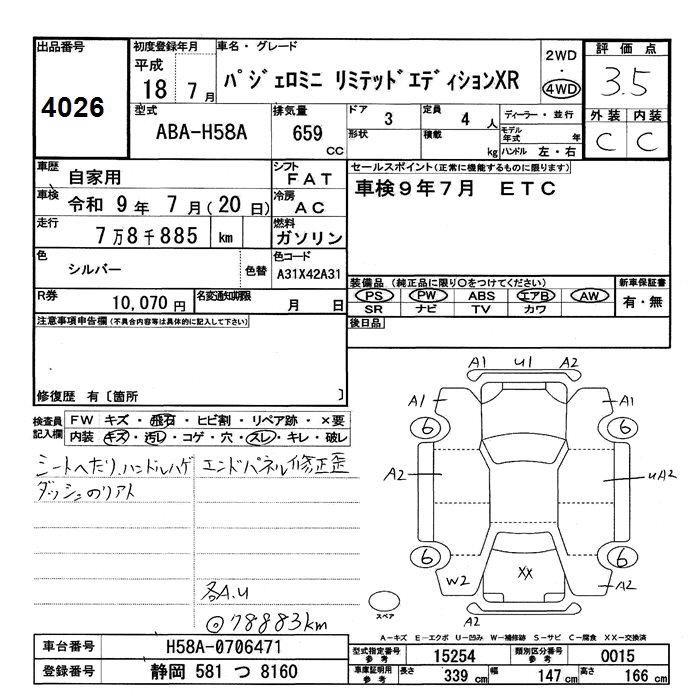 出品番号
4026
初度登録年月
平成
18 7月
車名・グレード
パジェロミニ リミテッドエディションXR
2WD
・
4WD
評価点
3.5
外装 内装
C C
型式
ABA-H58A
排気量
659
CC
ドア
3
定員
4 人
形状
積載
kg
ディーラー・並行
モデル
年式 年
ハンドル 左・右
車歴
自家用
シフト
FAT
車検
令和 9年 7月(20日)
冷房
AC
走行
7万8千885 km
燃料
ガソリン
色
シルバー
色替
色コード
A31X42A31
R券
10,070円
名変通知期限
月 日
セールスポイント(正常に機能するものに限ります)
車検9年7月 ETC
装備品 (純正品に限り○をつけてください)
PS PW ABS エアB AW
SR ナビ TV カワ
新車保証書
有・無
後日品
注意事項申告欄(不具合内容等は具体的に記入して下さい)
修復歴 有〔箇所 〕
検査員
記入欄
FW キズ・飛石・ヒビ割・リペア跡・×要
内装 キズ・汚レ・コゲ・穴・スレ・キレ・破レ
シートへたり、ハンドルハゲ
ダッシュのリアト
エンドパネル修正歪
各A.U
◎78883km
A1 U1 A2
A1 A1
6 6
A2 UA2
6 6
W2 XX A2
A2
スペア
A-キズ E-エクボ U-凹み W-補修跡 S-サビ C-腐食 XX-交換済
車台番号
H58A-0706471
登録番号
静岡 581 つ 8160
型式指定番号
参考
15254
類別区分番号
参考
0015
車庫証明用
参考
長さ 339 cm 幅 147 cm 高さ 166 cm